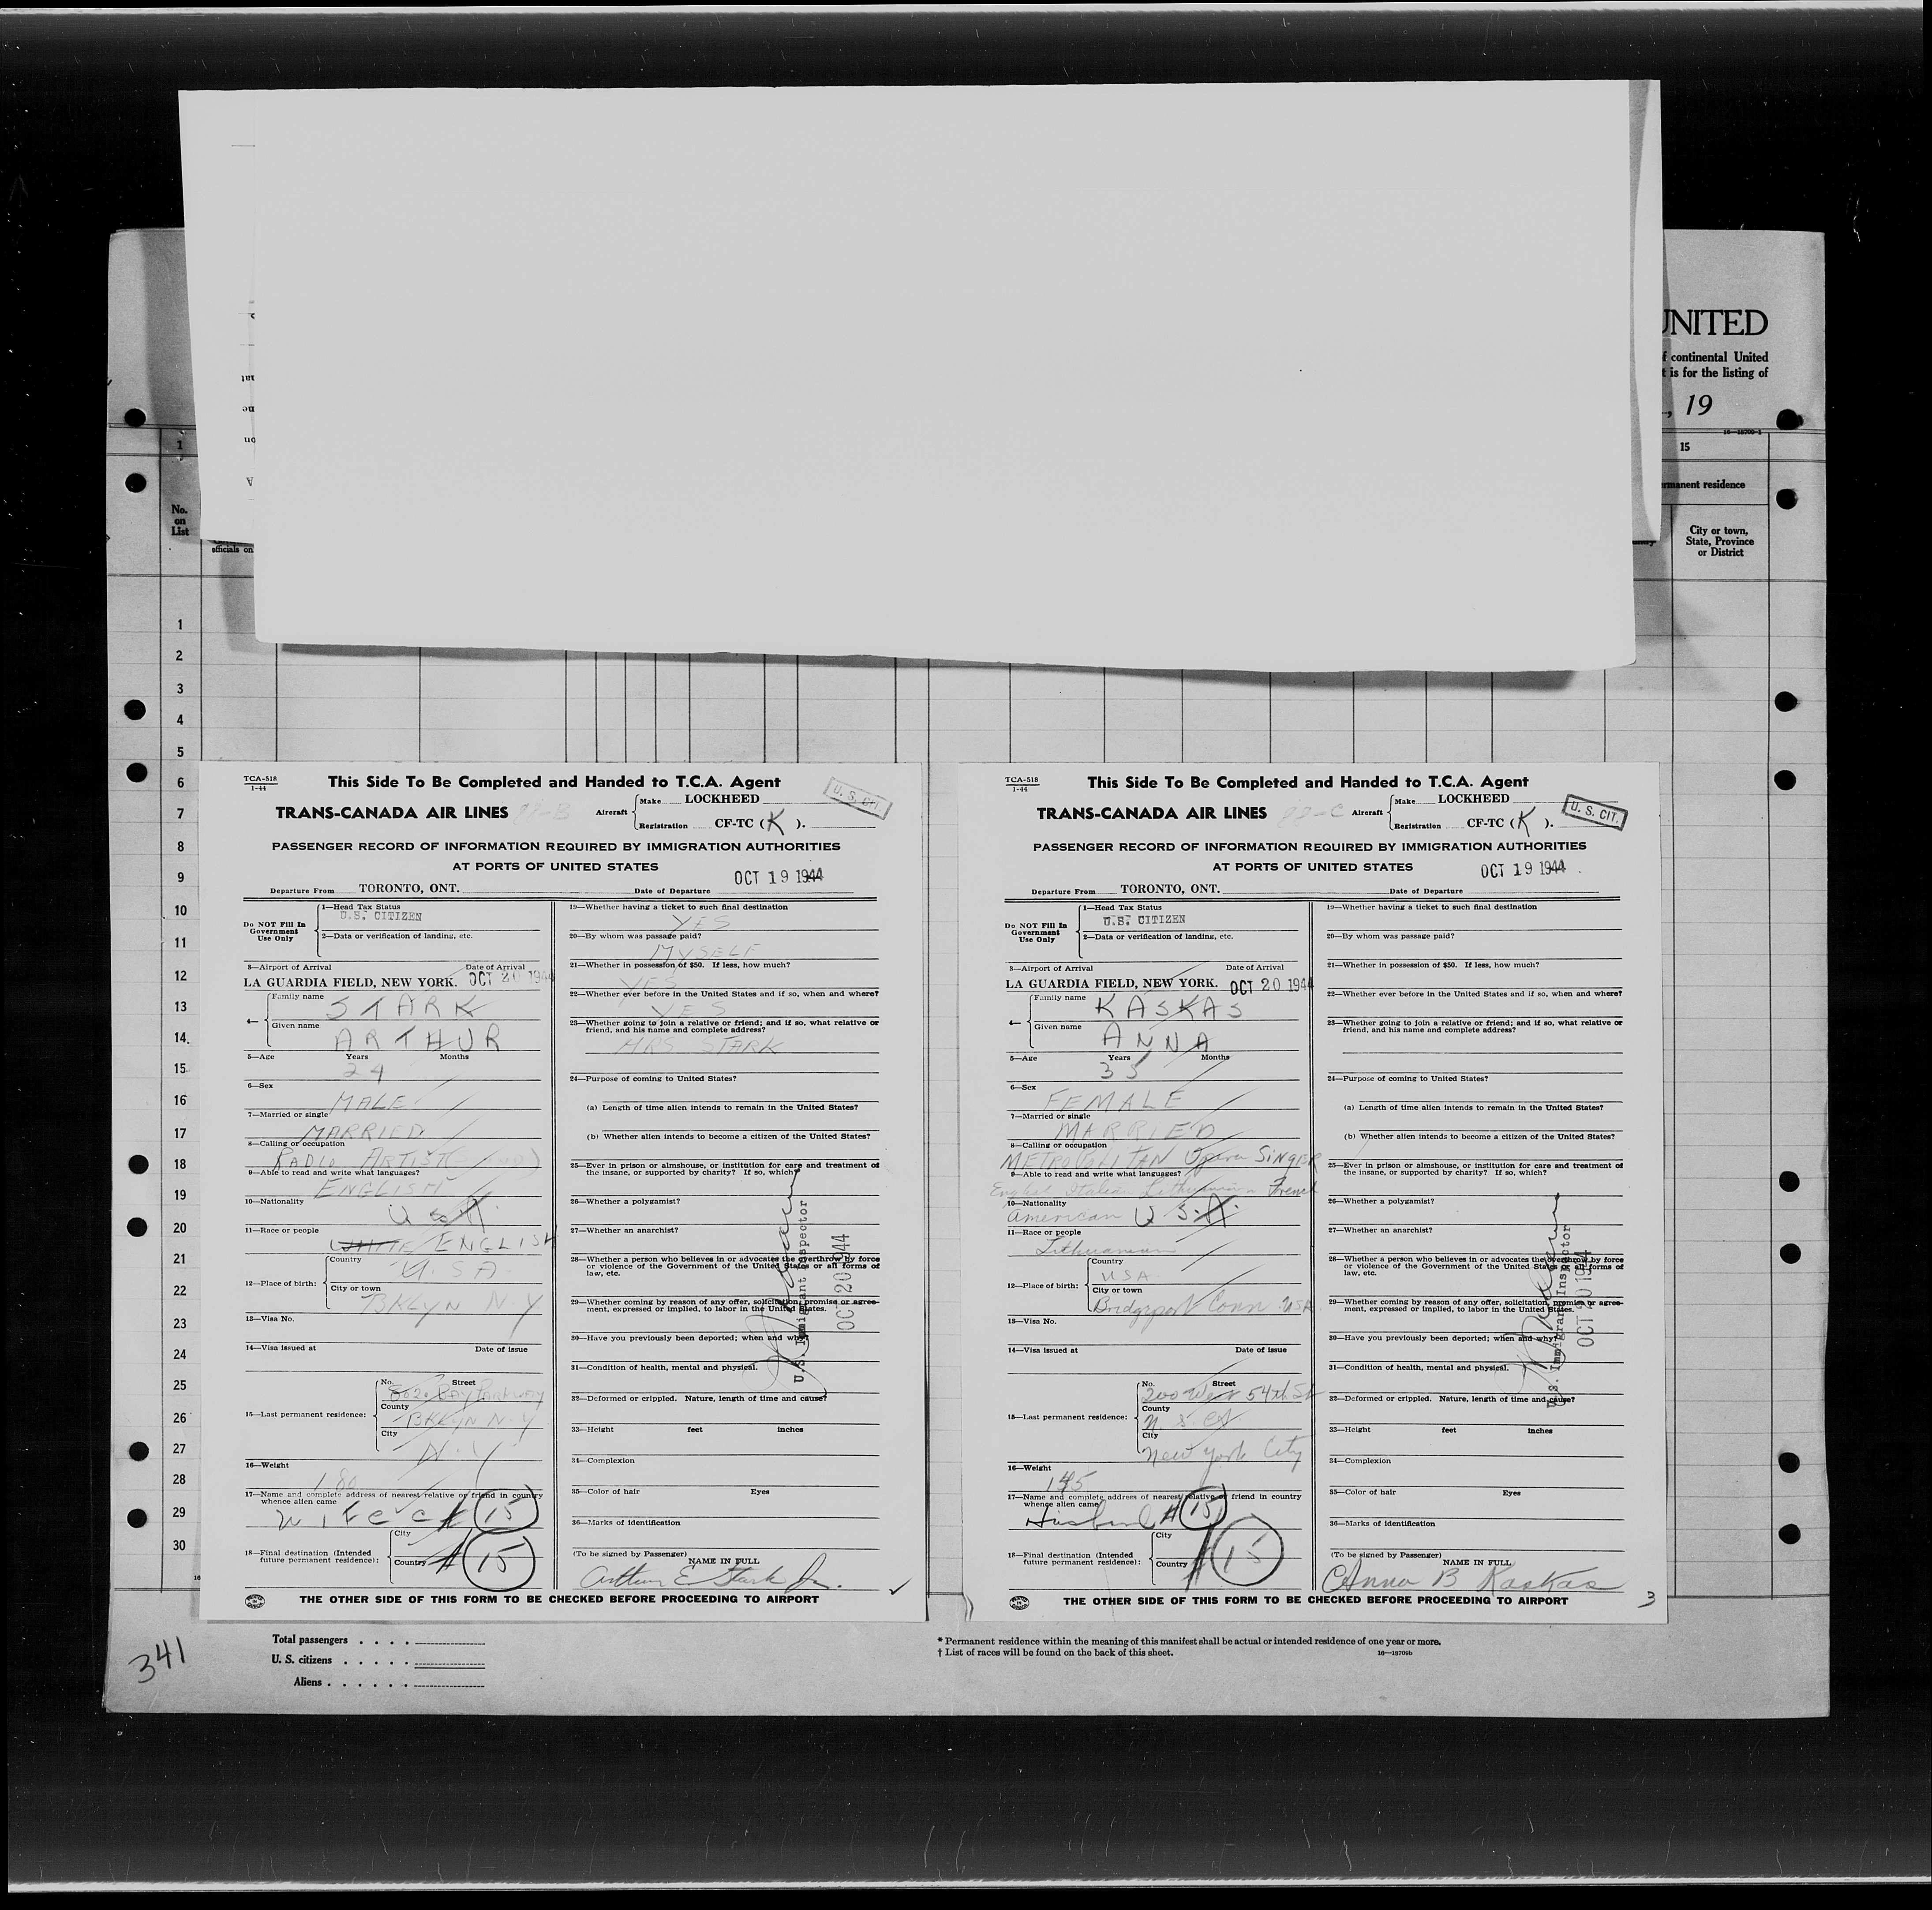 UNITED
of continental United
t is for the listing of
, 19
16—18709-1
1
15
ermanent residence
No.
on
List
City or town,
State, Province
or District
officials on
1
2
3
4
5
6
7
8
9
10
11
12
13
14
15
16
17
18
19
20
21
22
23
24
25
26
27
28
29
30
TCA-518
1-44
This Side To Be Completed and Handed to T.C.A. Agent
U. S. CIT.
TRANS-CANADA AIR LINES 88-B
Aircraft
Make LOCKHEED
Registration CF-TC (K).
PASSENGER RECORD OF INFORMATION REQUIRED BY IMMIGRATION AUTHORITIES
AT PORTS OF UNITED STATES
OCT 19 1944
Departure From TORONTO, ONT. Date of Departure
Do NOT Fill In
Government
Use Only
1—Head Tax Status
U.S. CITIZEN
2—Data or verification of landing, etc.
3—Airport of Arrival Date of Arrival
LA GUARDIA FIELD, NEW YORK. OCT 20 1944
4—
Family name STARK
Given name ARTHUR
5—Age Years Months
24
6—Sex MALE
7—Married or single MARRIED
8—Calling or occupation
RADIO ARTIST
9—Able to read and write what languages?
ENGLISH
10—Nationality U.S.A.
11—Race or people
WHITE ENGLISH
12—Place of birth:
Country
U.S.A
City or town
BKLYN N Y
13—Visa No.
14—Visa issued at Date of issue
15—Last permanent residence:
No. Street
8020 BAY PARKWAY
County
BKLYN N.Y
City
N.Y
16—Weight
180
17—Name and complete address of nearest relative or friend in country
whence alien came
WIFE # 15
18—Final destination (Intended
future permanent residence):
City
Country # 15
19—Whether having a ticket to such final destination
YES
20—By whom was passage paid?
MYSELF
21—Whether in possession of $50. If less, how much?
YES
22—Whether ever before in the United States and if so, when and where?
YES
23—Whether going to join a relative or friend; and if so, what relative or
friend, and his name and complete address?
MRS STARK
24—Purpose of coming to United States?
(a) Length of time alien intends to remain in the United States?
(b) Whether alien intends to become a citizen of the United States?
25—Ever in prison or almshouse, or institution for care and treatment of
the insane, or supported by charity? If so, which?
26—Whether a polygamist?
27—Whether an anarchist?
28—Whether a person who believes in or advocates the overthrow by force
or violence of the Government of the United States or all forms of
law, etc.
29—Whether coming by reason of any offer, solicitation, promise or agree-
ment, expressed or implied, to labor in the United States.
30—Have you previously been deported; when and why?
31—Condition of health, mental and physical.
32—Deformed or crippled. Nature, length of time and cause?
33—Height feet inches
34—Complexion
35—Color of hair Eyes
36—Marks of identification
(To be signed by Passenger)
NAME IN FULL
Arthur E Stark Jr.
U.S. Immigrant Inspector
OCT 20 1944
THE OTHER SIDE OF THIS FORM TO BE CHECKED BEFORE PROCEEDING TO AIRPORT
TCA-518
1-44
This Side To Be Completed and Handed to T.C.A. Agent
U. S. CIT.
TRANS-CANADA AIR LINES 88-C
Aircraft
Make LOCKHEED
Registration CF-TC (K).
PASSENGER RECORD OF INFORMATION REQUIRED BY IMMIGRATION AUTHORITIES
AT PORTS OF UNITED STATES
OCT 19 1944
Departure From TORONTO, ONT. Date of Departure
Do NOT Fill In
Government
Use Only
1—Head Tax Status
U.S. CITIZEN
2—Data or verification of landing, etc.
3—Airport of Arrival Date of Arrival
LA GUARDIA FIELD, NEW YORK. OCT 20 1944
4—
Family name KASKAS
Given name ANNA
5—Age Years Months
35
6—Sex
FEMALE
7—Married or single
MARRIED
8—Calling or occupation
METROPOLITAN Opera SINGER
9—Able to read and write what languages?
English Italian Lithuanian French
10—Nationality
American U.S.A.
11—Race or people
Lithuanian
12—Place of birth:
Country
USA
City or town
Bridgeport Conn. USA
13—Visa No.
14—Visa issued at Date of issue
15—Last permanent residence:
No. Street
200 West 54th St
County
City
New York City
16—Weight
145
17—Name and complete address of nearest relative or friend in country
whence alien came
Husband # 15
18—Final destination (Intended
future permanent residence):
City
Country # 15
19—Whether having a ticket to such final destination
20—By whom was passage paid?
21—Whether in possession of $50. If less, how much?
22—Whether ever before in the United States and if so, when and where?
23—Whether going to join a relative or friend; and if so, what relative or
friend, and his name and complete address?
24—Purpose of coming to United States?
(a) Length of time alien intends to remain in the United States?
(b) Whether alien intends to become a citizen of the United States?
25—Ever in prison or almshouse, or institution for care and treatment of
the insane, or supported by charity? If so, which?
26—Whether a polygamist?
27—Whether an anarchist?
28—Whether a person who believes in or advocates the overthrow by force
or violence of the Government of the United States or all forms of
law, etc.
29—Whether coming by reason of any offer, solicitation, promise or agree-
ment, expressed or implied, to labor in the United States.
30—Have you previously been deported; when and why?
31—Condition of health, mental and physical.
32—Deformed or crippled. Nature, length of time and cause?
33—Height feet inches
34—Complexion
35—Color of hair Eyes
36—Marks of identification
(To be signed by Passenger)
NAME IN FULL
Anna B Kaskas
U.S. Immigrant Inspector
OCT 20 1944
THE OTHER SIDE OF THIS FORM TO BE CHECKED BEFORE PROCEEDING TO AIRPORT
3
341
Total passengers . . . .
U. S. citizens . . . . .
Aliens . . . . . .
* Permanent residence within the meaning of this manifest shall be actual or intended residence of one year or more.
† List of races will be found on the back of this sheet.
16—18709b